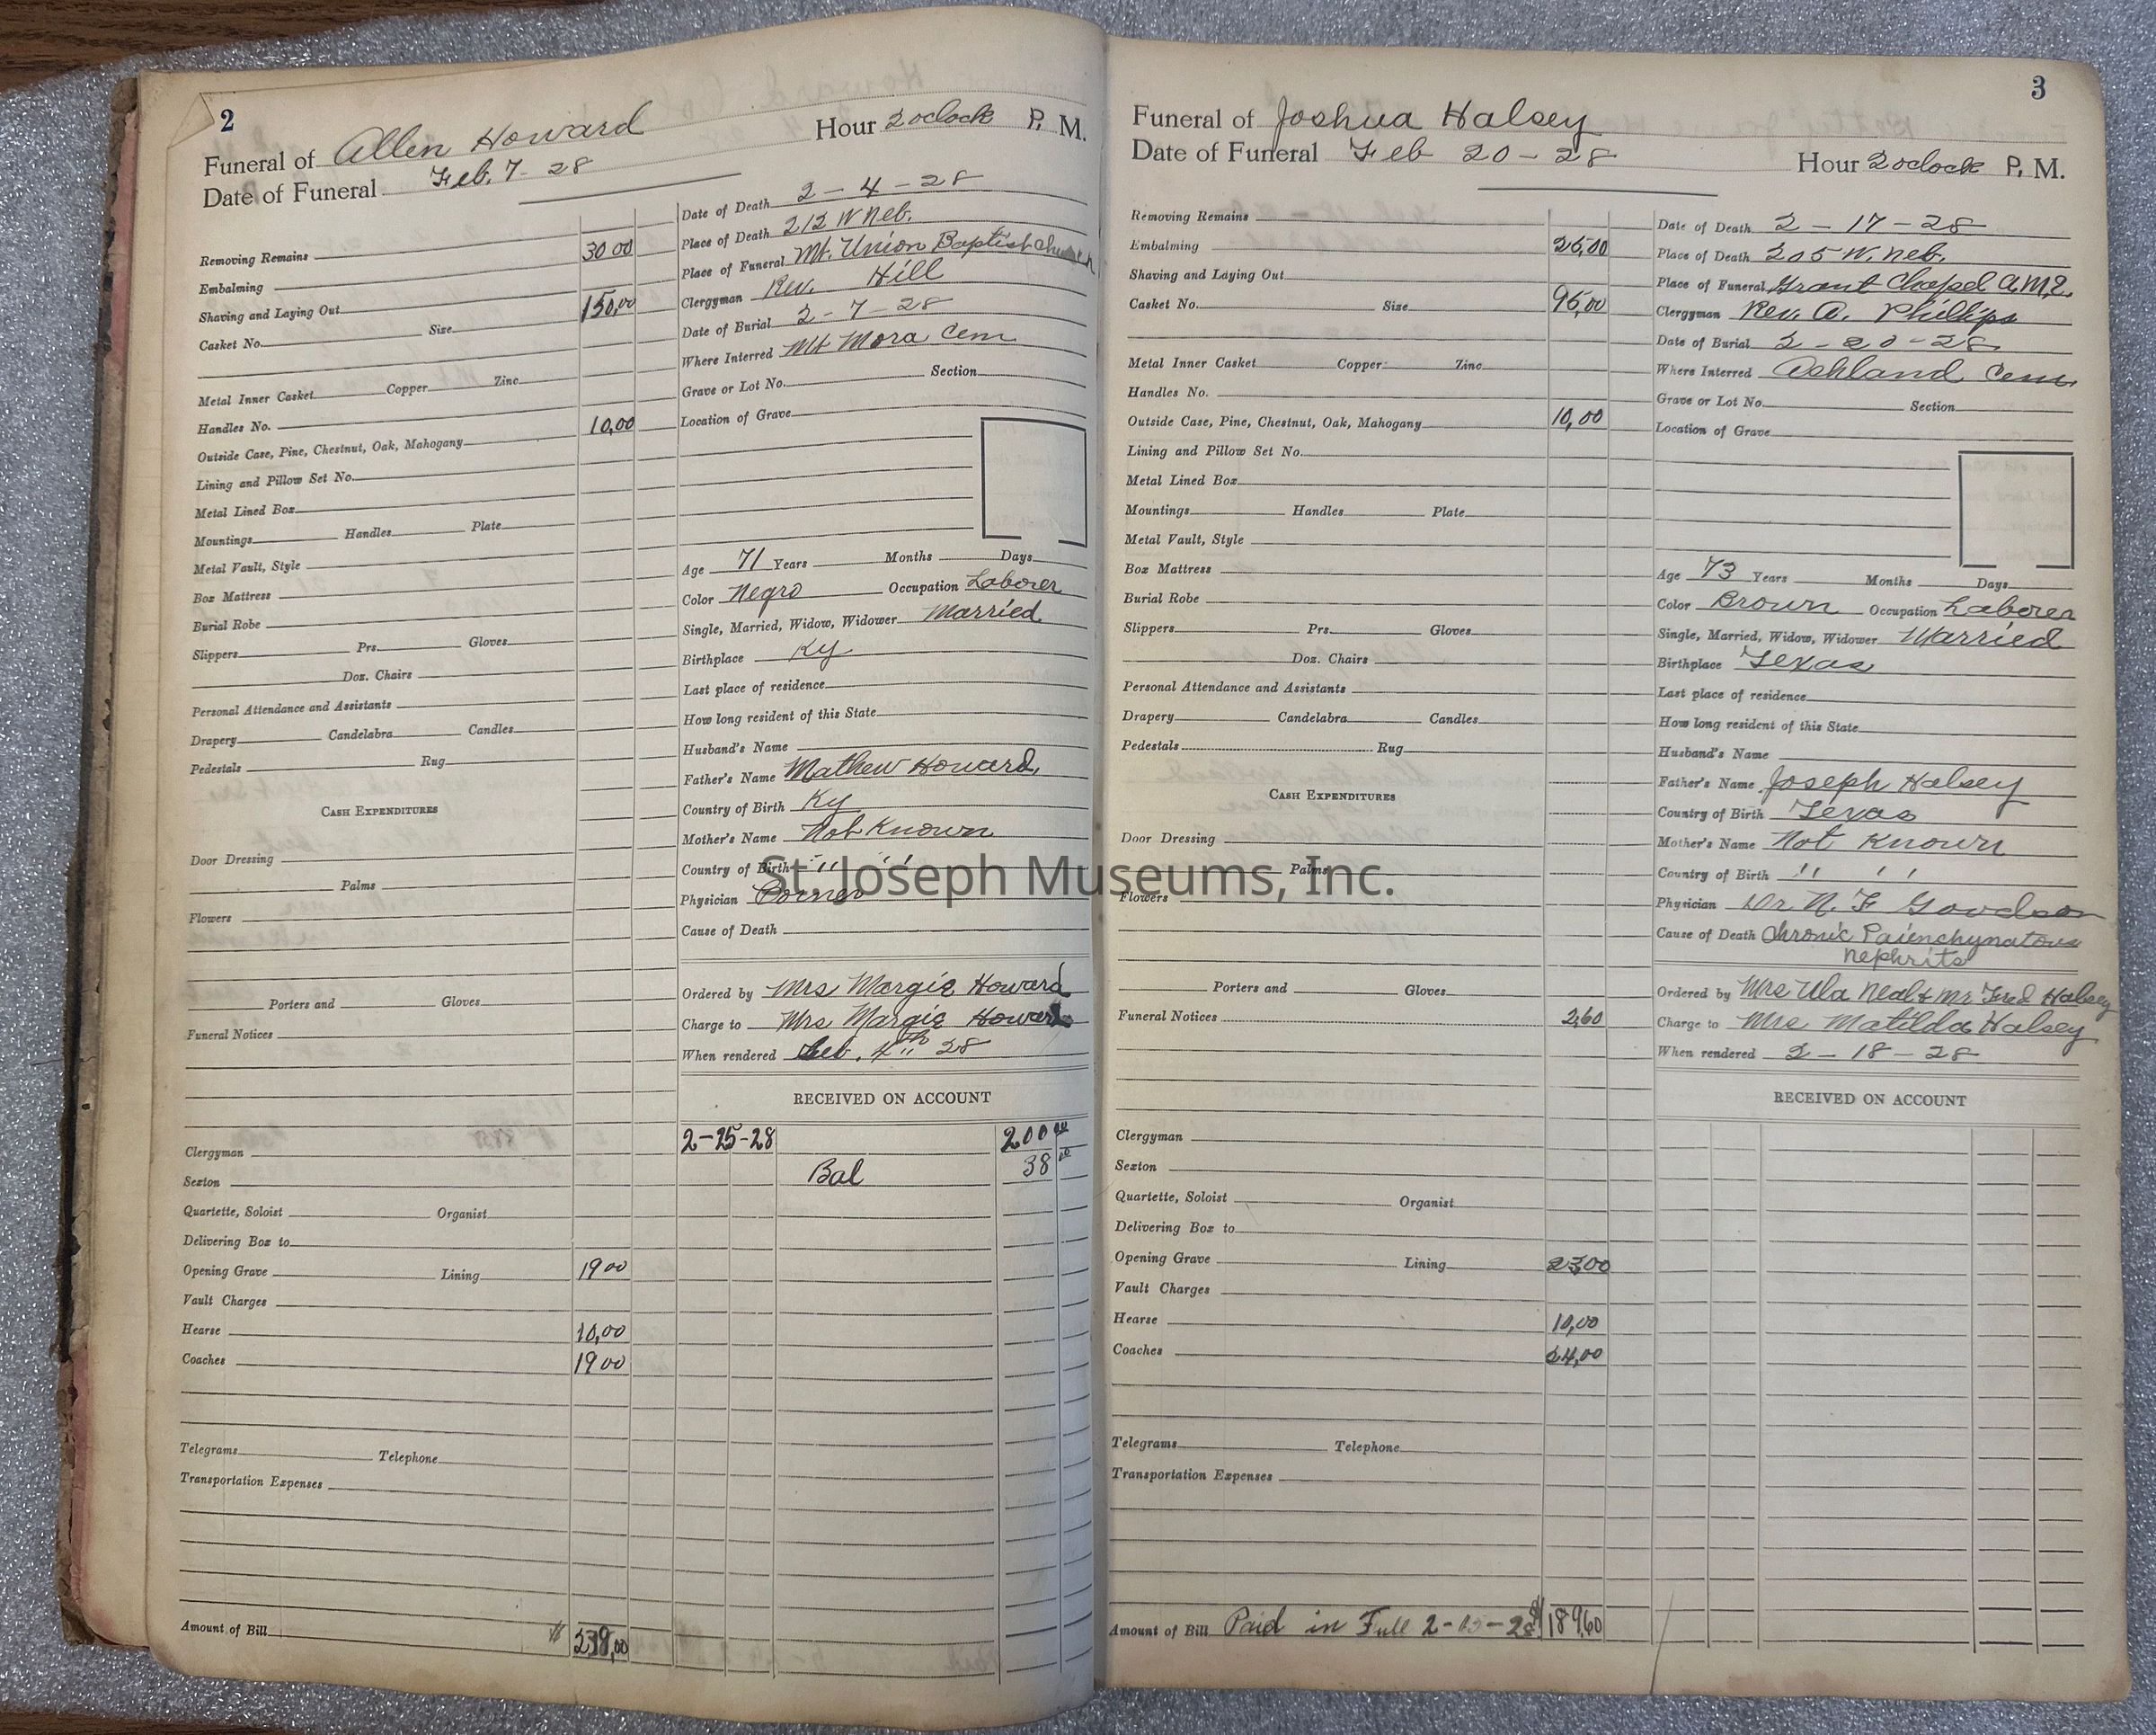 2
Funeral of Allen Howard Hour 2 oclock P. M.
Date of Funeral Feb. 7-28
Removing Remains
Embalming 30 00
Shaving and Laying Out
Casket No. Size 150,00
Metal Inner Casket Copper Zinc
Handles No.
Outside Case, Pine, Chestnut, Oak, Mahogany 10,00
Lining and Pillow Set No.
Metal Lined Box
Mountings Handles Plate
Metal Vault, Style
Box Mattress
Burial Robe
Slippers Prs. Gloves
Doz. Chairs
Personal Attendance and Assistants
Drapery Candelabra Candles
Pedestals Rug
CASH EXPENDITURES
Door Dressing
Palms
Flowers
Porters and Gloves
Funeral Notices
Clergyman
Sexton
Quartette, Soloist Organist
Delivering Box to
Opening Grave Lining 19 00
Vault Charges
Hearse 10,00
Coaches 19 00
Telegrams Telephone
Transportation Expenses
Amount of Bill $ 238,00
Date of Death 2-4-28
Place of Death 212 W Neb.
Place of Funeral Mt. Union Baptist Church
Clergyman Rev. Hill
Date of Burial 2-7-28
Where Interred Mt Mora Cem
Grave or Lot No. Section
Location of Grave
Age 71 Years Months Days
Color Negro Occupation Laborer
Single, Married, Widow, Widower Married
Birthplace Ky
Last place of residence
How long resident of this State
Husband's Name
Father's Name Mathew Howard
Country of Birth Ky
Mother's Name Not Known
Country of Birth " "
Physician Corner
Cause of Death
Ordered by Mrs Margie Howard
Charge to Mrs Margie Howard
When rendered Feb. 4th 28
RECEIVED ON ACCOUNT
2-25-28 200 00
Bal 38 00
3
Funeral of Joshua Halsey
Date of Funeral Feb 20-28 Hour 2 oclock P. M.
Removing Remains
Embalming 25,00
Shaving and Laying Out
Casket No. Size 95,00
Metal Inner Casket Copper Zinc
Handles No.
Outside Case, Pine, Chestnut, Oak, Mahogany 10,00
Lining and Pillow Set No.
Metal Lined Box
Mountings Handles Plate
Metal Vault, Style
Box Mattress
Burial Robe
Slippers Prs. Gloves
Doz. Chairs
Personal Attendance and Assistants
Drapery Candelabra Candles
Pedestals Rug
CASH EXPENDITURES
Door Dressing
Palms
Flowers
Porters and Gloves
Funeral Notices 2,60
Clergyman
Sexton
Quartette, Soloist Organist
Delivering Box to
Opening Grave Lining 23,00
Vault Charges
Hearse 10,00
Coaches 24,00
Telegrams Telephone
Transportation Expenses
Amount of Bill Paid in Full $ 189,60
Date of Death 2-17-28
Place of Death 205 W. Neb.
Place of Funeral Grant Chapel A.M.E.
Clergyman Rev. A. Phillips
Date of Burial 2-20-28
Where Interred Ashland Cem
Grave or Lot No. Section
Location of Grave
Age 73 Years Months Days
Color Brown Occupation Laborer
Single, Married, Widow, Widower Married
Birthplace Texas
Last place of residence
How long resident of this State
Husband's Name
Father's Name Joseph Halsey
Country of Birth Texas
Mother's Name Not Known
Country of Birth " "
Physician Dr N. F Goodson
Cause of Death Chronic Paienchynatous
nephrits
Ordered by Mrs Ula Neal & Mr Fred Halsey
Charge to Mrs Matilda Halsey
When rendered 2-18-28
RECEIVED ON ACCOUNT
St. Joseph Museums, Inc.